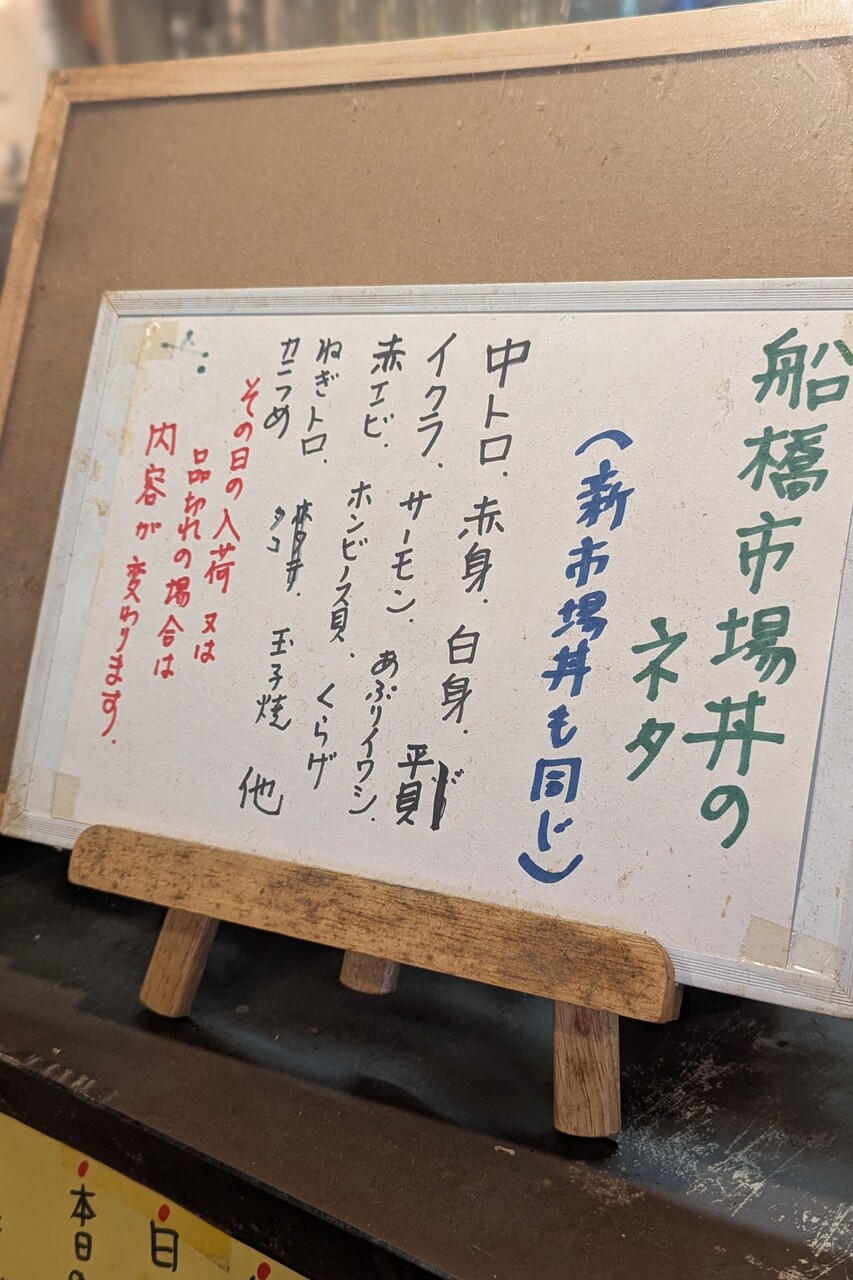 船橋市場丼の
ネタ
（新市場丼も同じ）
中トロ．赤身．白身．
イクラ．サーモン．平貝
赤エビ．ホンビノス貝．あぶりイワシ．
ねぎトロ．くらげ
カニつめ タコ 玉子焼 他
その日の入荷 又は
品切れの場合は
内容が変わります．
本日の
日